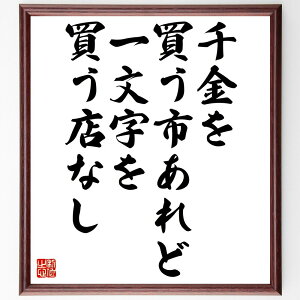 千金を
買う市あれど
一文字を
買う店なし